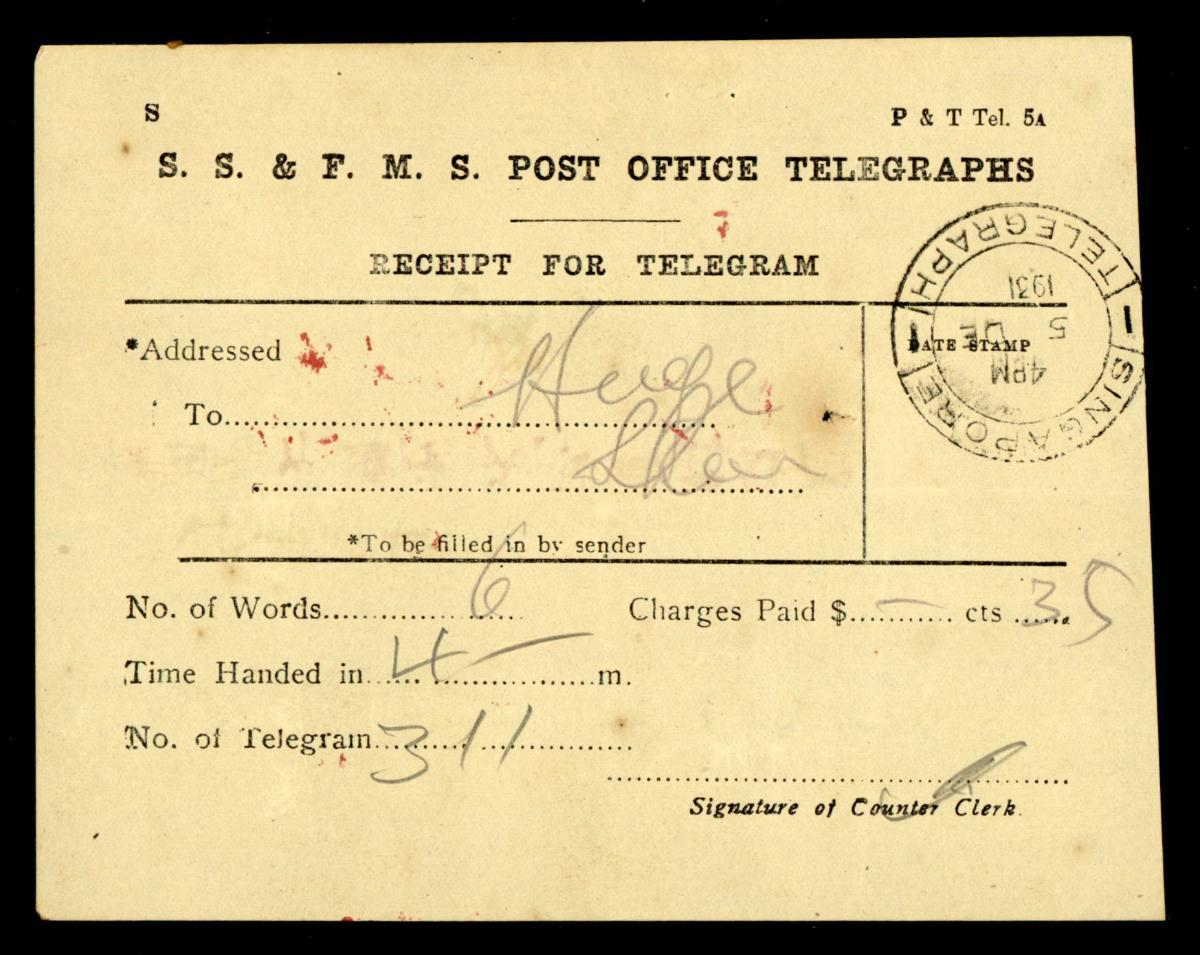 S
P & T Tel. 5A
S. S. & F. M. S. POST OFFICE TELEGRAPHS
RECEIPT FOR TELEGRAM
*Addressed
DATE STAMP
TELEGRAPH
1931
5 DE
4PM
SINGAPORE
To
*To be filled in by sender
No. of Words 6 Charges Paid $ – cts 35
Time Handed in 4 – m.
No. of Telegram 311
Signature of Counter Clerk.